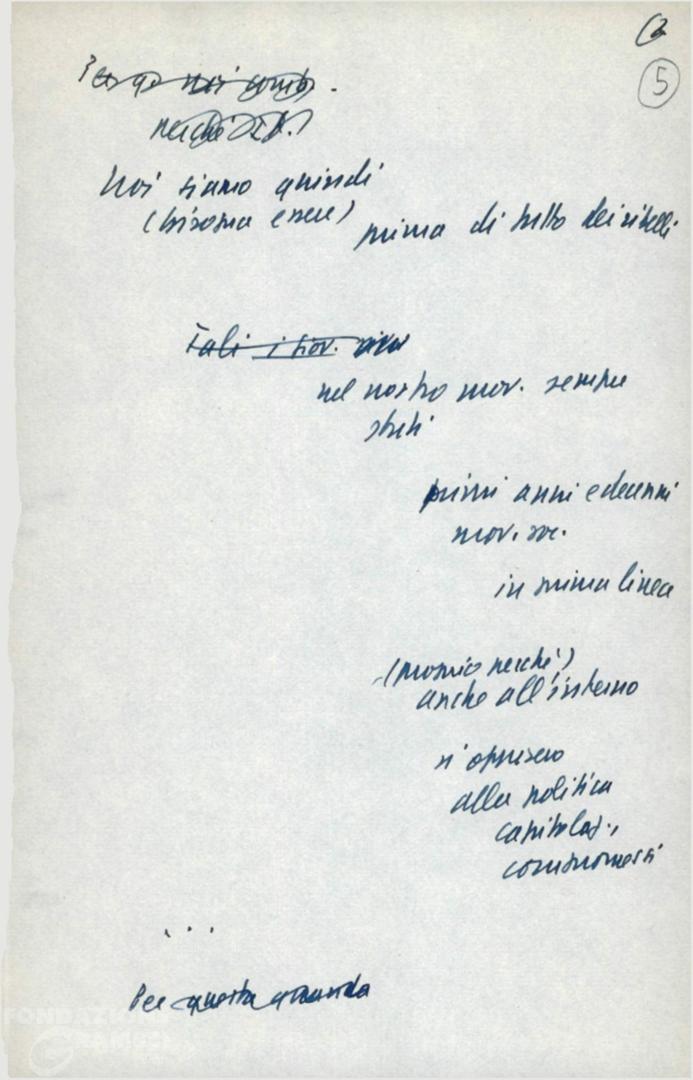 5
noi siamo quindi
(bisogna essere) prima di tutto dei ribelli
Tali i giov.
nel nostro mov. sempre
stati
primi anni e decenni
mov. soc.
in prima linea
(proprio perché)
anche all'interno
si opposero
alla politica
capitolaz.,
compromessi
...
Per questa
FONDAZIONE
GRAMSCI